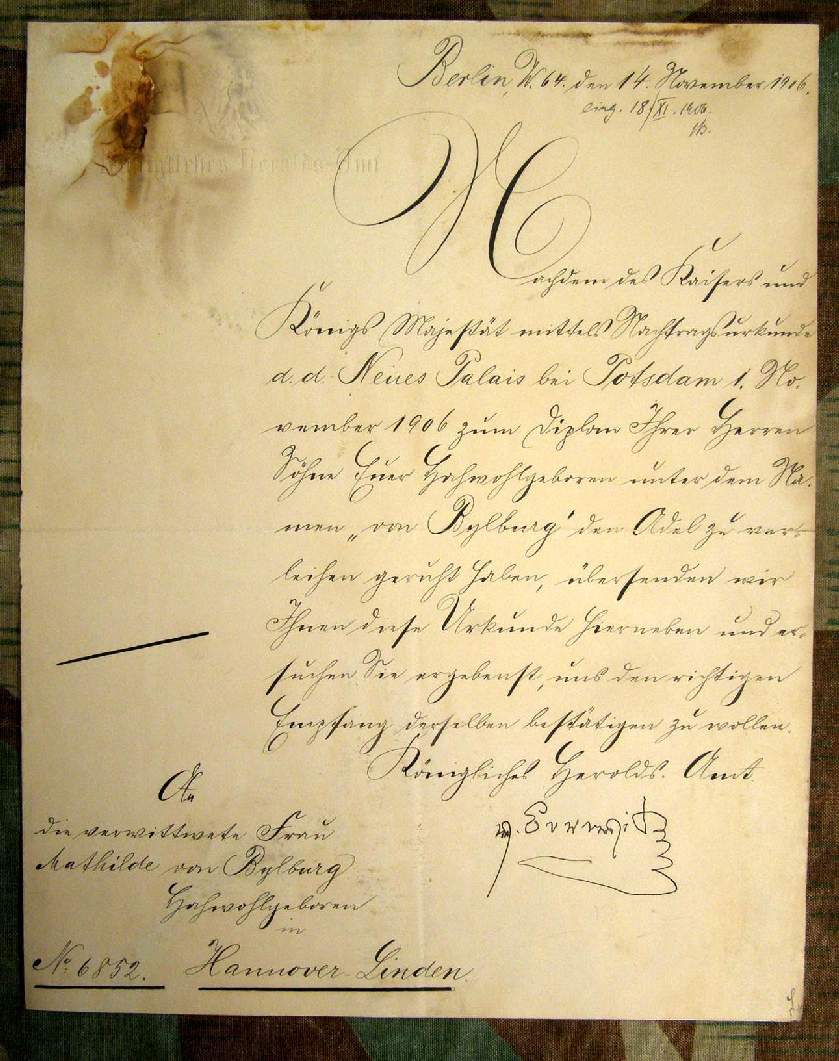 Berlin, W 64. den 14. November 1906.
eing. 18/XI. 1906.
Königliches Herolds-Amt
Nachdem des Kaisers und
Königs Majestät mittels Nachtragsurkunde
d. d. Neues Palais bei Potsdam 1. No-
vember 1906 zum Diplom Ihrer Herren
Söhne Euer Hochwohlgeboren unter dem Na-
men „von Bylburg“ den Adel zu ver-
leihen geruht haben, übersenden wir
Ihnen diese Urkunde hierneben und er-
suchen Sie ergebenst, uns den richtigen
Empfang derselben bestätigen zu wollen.
Königliches Herolds-Amt
An
die verwittwete Frau
Mathilde von Bylburg
Hochwohlgeboren
in
No. 6852. Hannover-Linden.